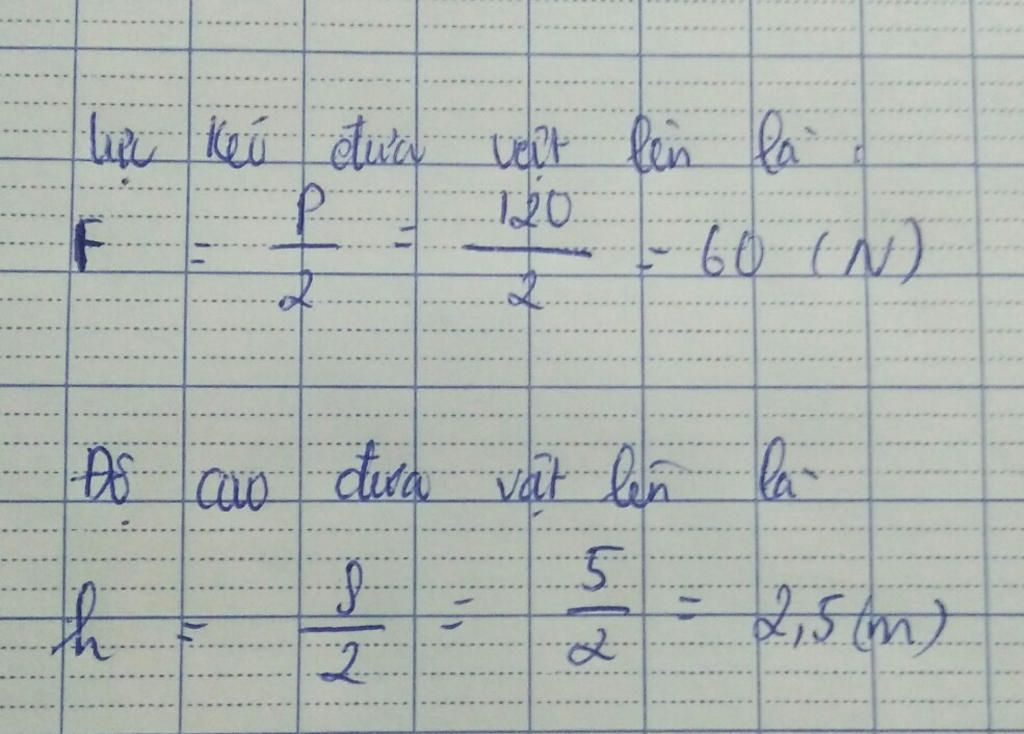 Lực kéo đưa vật lên là :
F = P/2 = 120/2 = 60 (N)
Độ cao đưa vật lên là
h = s/2 = 5/2 = 2,5 (m)